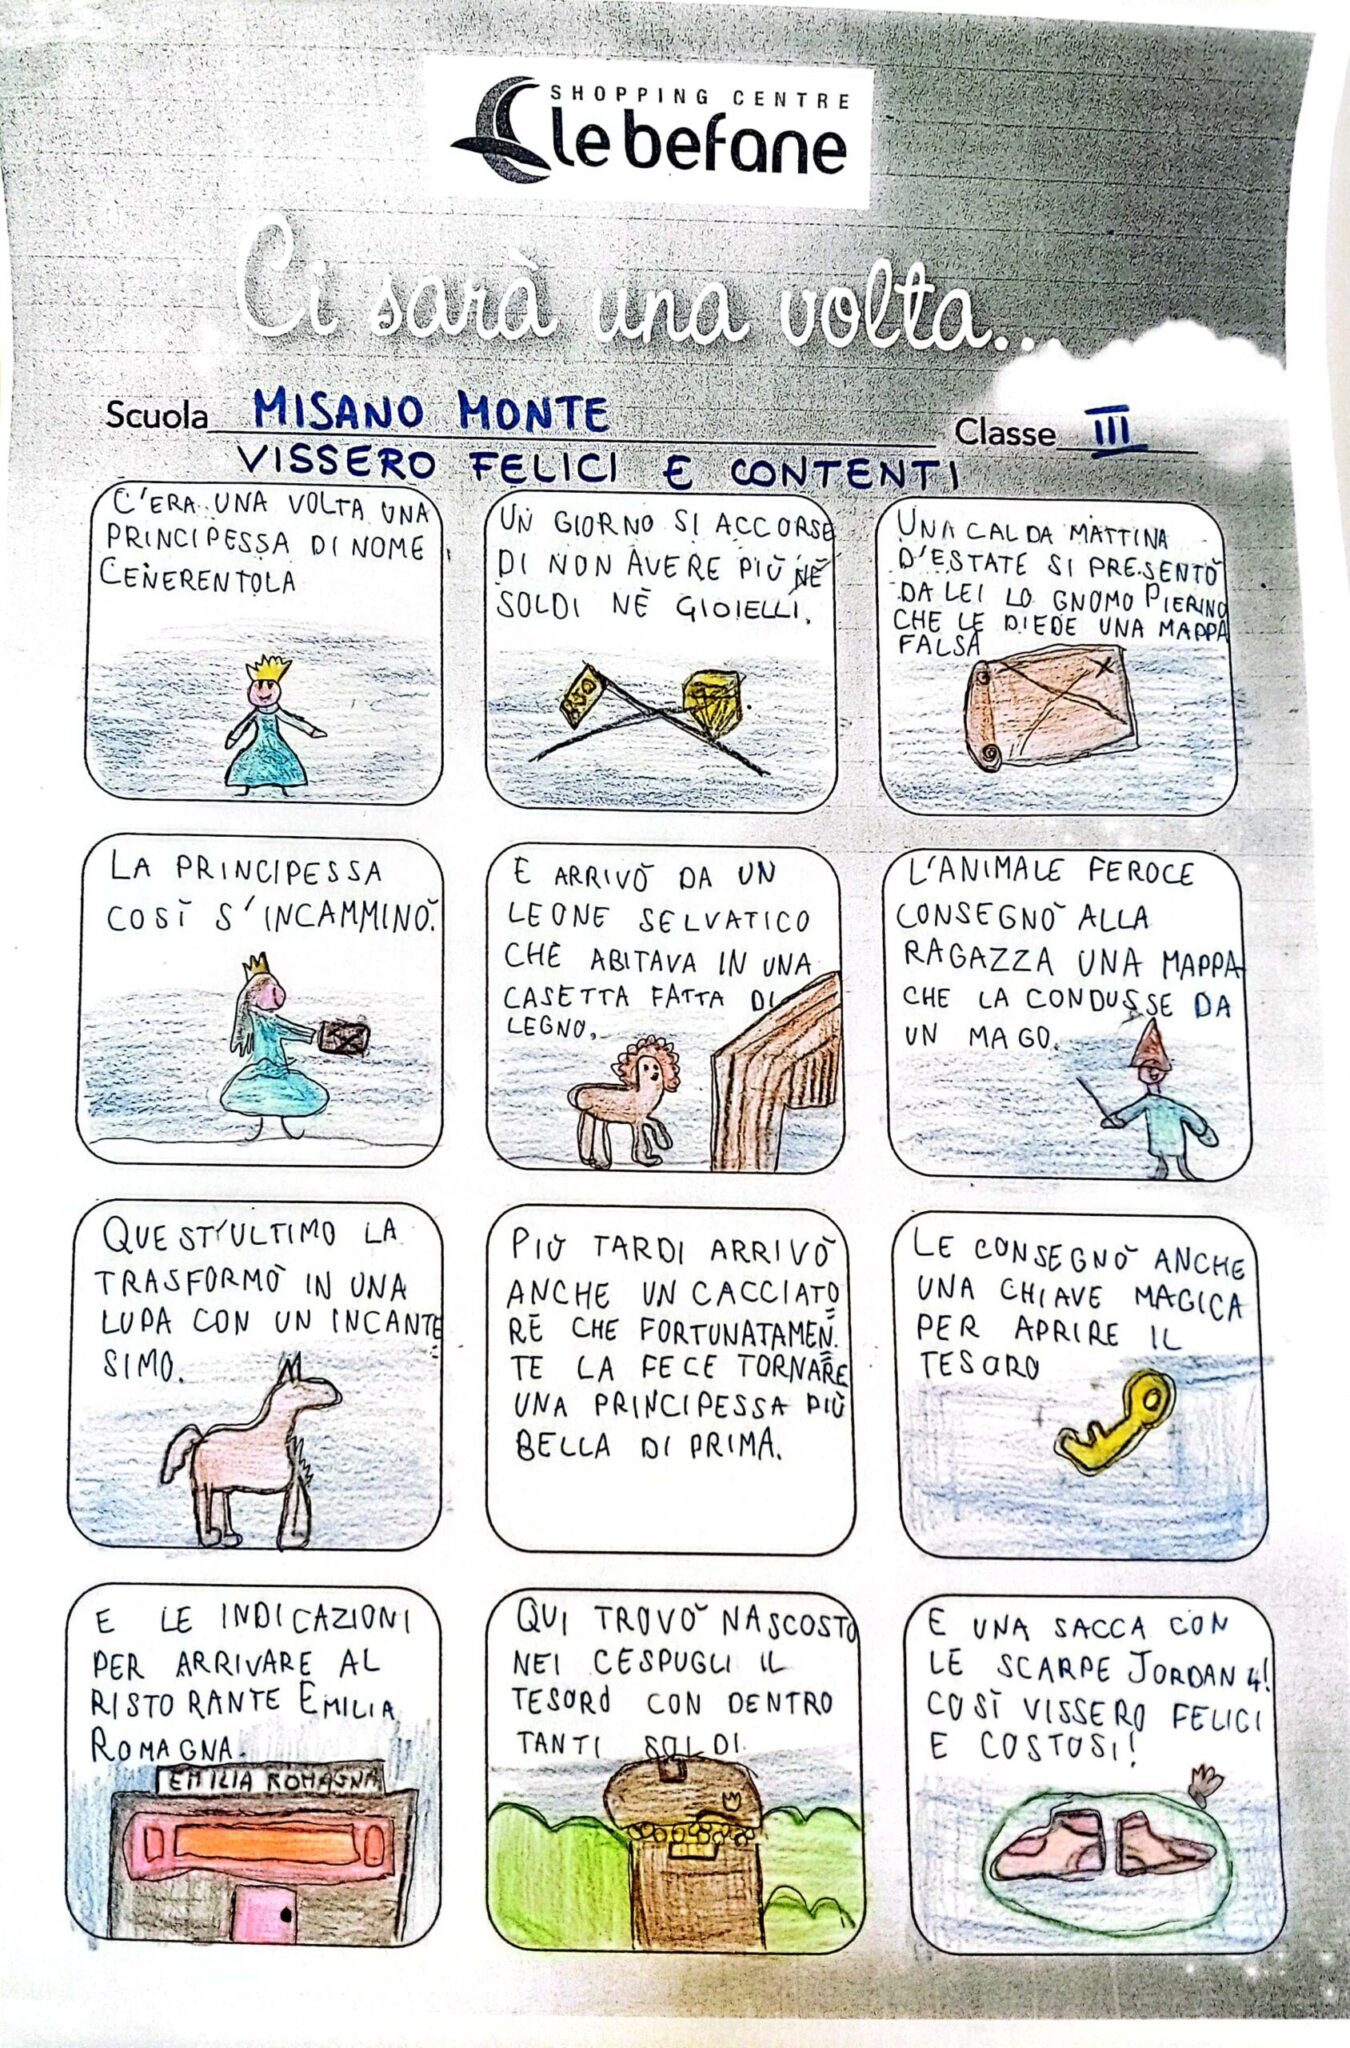 SHOPPING CENTRE
le befane
Ci sarà una volta...
Scuola MISANO MONTE Classe III
VISSERO FELICI E CONTENTI
C'ERA UNA VOLTA UNA
PRINCIPESSA DI NOME
CENERENTOLA
UN GIORNO SI ACCORSE
DI NON AVERE PIÙ NÈ
SOLDI NÈ GIOIELLI.
UNA CALDA MATTINA
D'ESTATE SI PRESENTÒ
DA LEI LO GNOMO PIERINO
CHE LE DIEDE UNA MAPPA
FALSA
LA PRINCIPESSA
COSÌ S'INCAMMINÒ.
E ARRIVÒ DA UN
LEONE SELVATICO
CHE ABITAVA IN UNA
CASETTA FATTA DI
LEGNO.
L'ANIMALE FEROCE
CONSEGNÒ ALLA
RAGAZZA UNA MAPPA
CHE LA CONDUSSE DA
UN MAGO.
QUEST'ULTIMO LA
TRASFORMÒ IN UNA
LUPA CON UN INCANTE
SIMO.
PIÙ TARDI ARRIVÒ
ANCHE UN CACCIATO
RE CHE FORTUNATAMEN
TE LA FECE TORNARE
UNA PRINCIPESSA PIÙ
BELLA DI PRIMA.
LE CONSEGNÒ ANCHE
UNA CHIAVE MAGICA
PER APRIRE IL
TESORO
E LE INDICAZIONI
PER ARRIVARE AL
RISTORANTE EMILIA
ROMAGNA.
EMILIA ROMAGNA
QUI TROVÒ NASCOSTO
NEI CESPUGLI IL
TESORO CON DENTRO
TANTI SOLDI.
E UNA SACCA CON
LE SCARPE JORDAN 4!
COSÌ VISSERO FELICI
E COSTOSI!